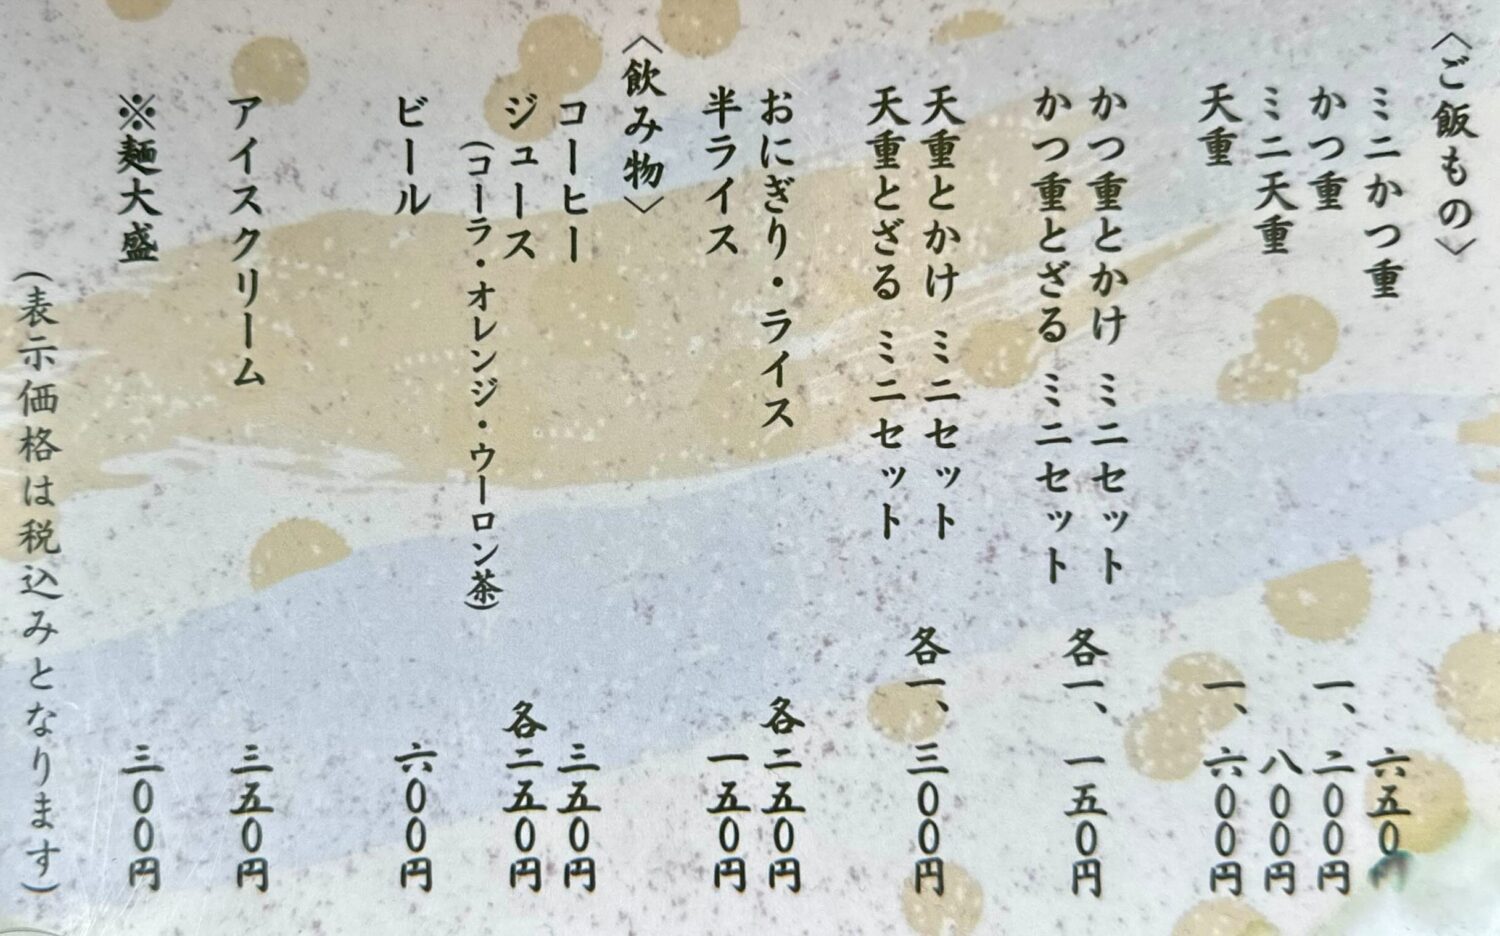 〈ご飯もの〉
ミニかつ重 六五〇円
かつ重 一、二〇〇円
ミニ天重 八〇〇円
天重 一、六〇〇円
かつ重とかけ ミニセット
かつ重とざる ミニセット 各一、一五〇円
天重とかけ ミニセット
天重とざる ミニセット 各一、三〇〇円
おにぎり・ライス 各二五〇円
半ライス 一五〇円
〈飲み物〉
コーヒー 三五〇円
ジュース 各二五〇円
(コーラ・オレンジ・ウーロン茶)
ビール 六〇〇円
アイスクリーム 三五〇円
※麺大盛 三〇〇円
(表示価格は税込みとなります)